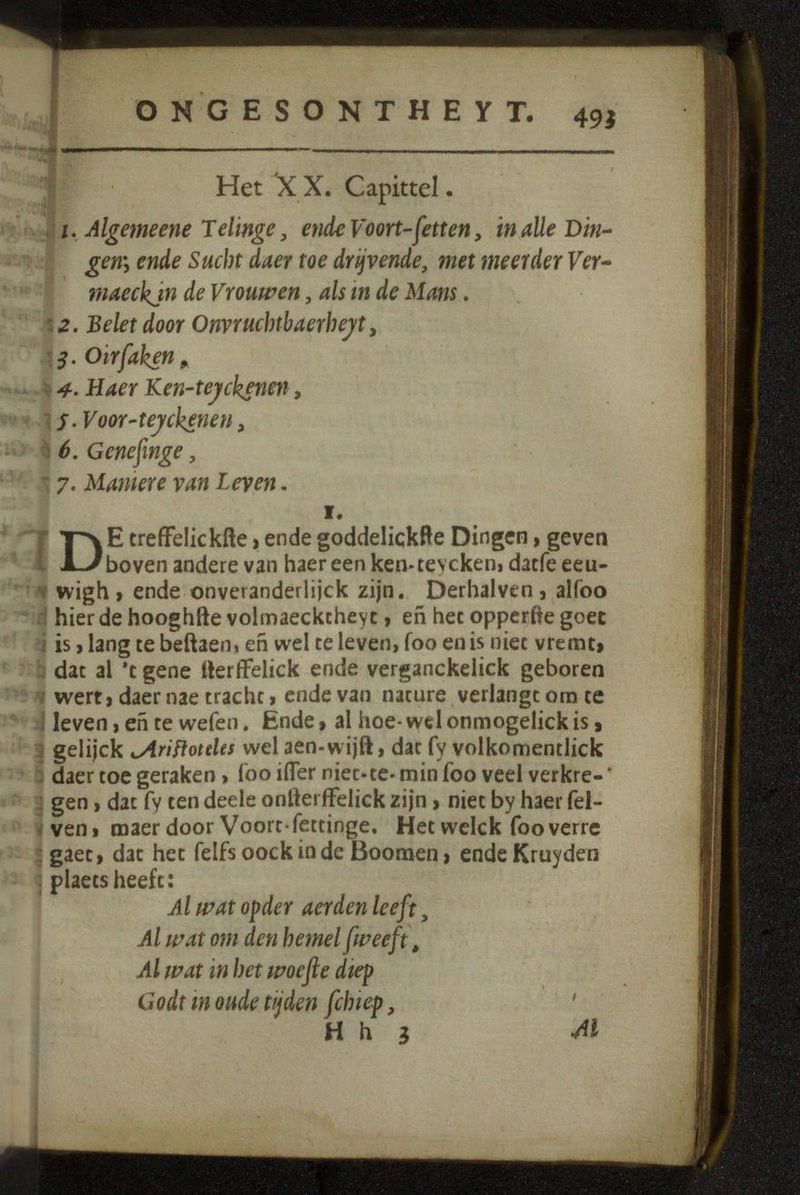 ONGESONTHEYT. 493
Het XX. Capittel.
1. Algemeene Telinge, ende Voort-ſetten, in alle Din-
gen; ende Sucht daer toe drijvende, met meerder Ver-
maeck in de Vrouwen, als in de Mans.
2. Belet door Onvruchtbaerheyt,
3. Oirſaken,
4. Haer Ken-teyckenen,
5. Voor-teyckenen,
6. Geneſinge,
7. Maniere van Leven.
I.
DE treffelickſte, ende goddelickſte Dingen, geven
boven andere van haer een ken-teycken, datſe eeu-
wigh, ende onveranderlijck zijn. Derhalven, alſoo
hier de hooghſte volmaecktheyt, eñ het opperſte goet
is, lang te beſtaen, eñ wel te leven, ſoo en is niet vremt,
dat al 't gene ſterffelick ende verganckelick geboren
wert, daer nae tracht, ende van nature verlangt om te
leven, eñ te weſen. Ende, al hoe-wel onmogelick is,
gelijck Ariſtoteles wel aen-wijſt, dat ſy volkomentlick
daer toe geraken, ſoo iſſer niet-te-min ſoo veel verkre-
gen, dat ſy ten deele onſterffelick zijn, niet by haer ſel-
ven, maer door Voort-ſettinge. Het welck ſoo verre
gaet, dat het ſelfs oock in de Boomen, ende Kruyden
plaets heeft:
Al wat op der aerden leeft,
Al wat om den hemel ſweeft,
Al wat in het woeſte diep
Godt in oude tijden ſchiep,
Hh 3 Al